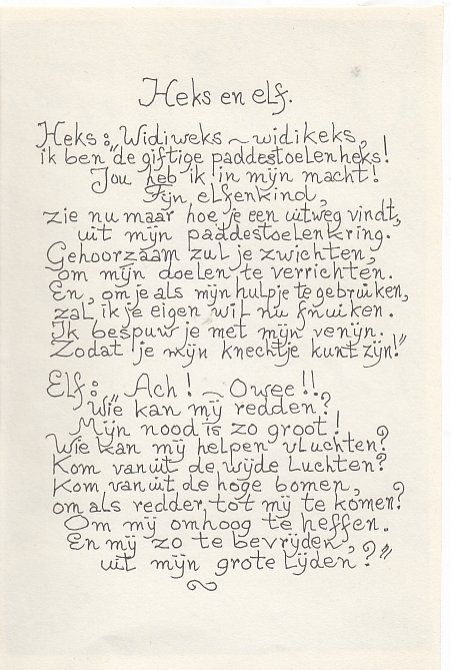 Heks en elf.
Heks: "Widiweks ~ widikeks,
ik ben de giftige paddestoelenheks!
Jou heb ik in mijn macht!
Fijn elfenkind,
zie nu maar hoe je een uitweg vindt,
uit mijn paddestoelenkring.
Gehoorzaam zul je zwichten,
om mijn doelen te verrichten.
En, om je als mijn hulpje te gebruiken,
zal ik je eigen wil nu fnuiken.
Ik bespuw je met mijn venijn.
Zodat je mijn knechtje kunt zijn!"
Elf: " Ach! ~ O wee!!
Wie kan mij redden?
Mijn nood is zo groot!
Wie kan mij helpen vluchten?
Kom vanuit de wijde luchten?
Kom vanuit de hoge bomen,
om als redder tot mij te komen?
Om mij omhoog te heffen.
En mij zo te bevrijden,
uit mijn grote lijden?"